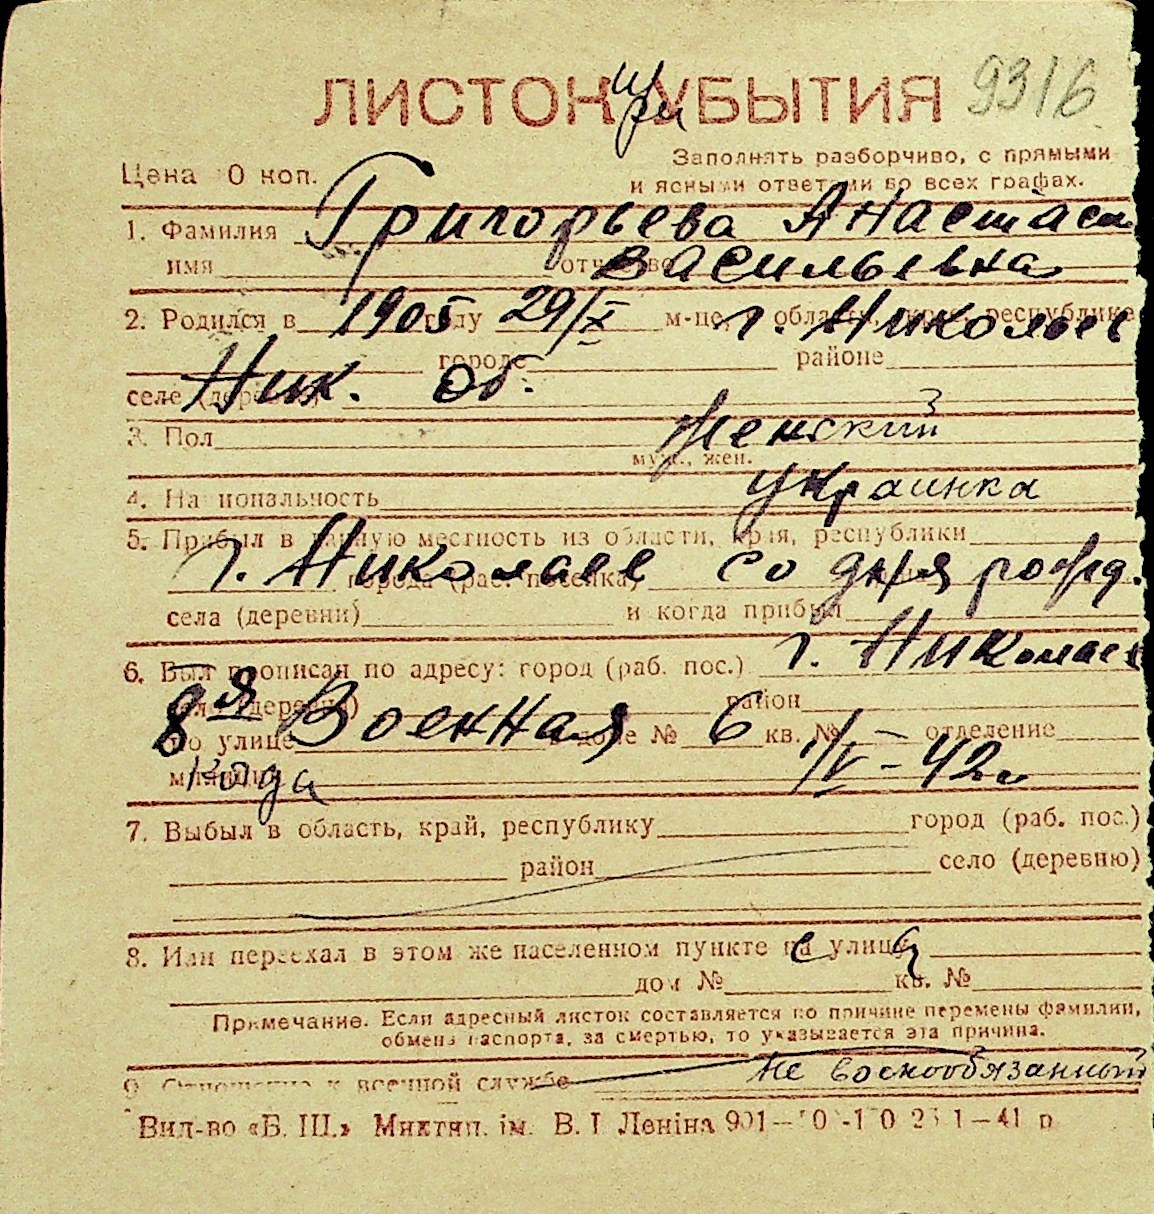 ЛИСТОК при УБЫТИЯ 9316
Цена 0 коп. Заполнять разборчиво, с прямыми
и ясными ответами во всех графах.
1. Фамилия Григорьева Анастаси
имя отчество Васильевна
2. Родился в 1905 году 29/X м-це, в области, крае, республике г. Николаев
городе районе
селе (деревне) Ник. об.
3. Пол женский
муж., жен.
4. Национальность украинка
5. Прибыл в данную местность из области, края, республики
г. Николаев со дня рожд.
города (раб. поселка)
села (деревни) и когда прибыл
6. Был прописан по адресу: город (раб. пос.) г. Николаев
село (деревня) район
по улице 8я Военная в доме № 6 кв. № отделение
милиции когда 1/V-42г
7. Выбыл в область, край, республику город (раб. пос.)
район село (деревню)
8. Или переехал в этом же населенном пункте на улицу
дом № кв. №
Примечание. Если адресный листок составляется по причине перемены фамилии,
обмена паспорта, за смертью, то указывается эта причина.
9. Отношение к военной службе не военнообязанный
Вид-во «Б. Ш.» Миктип. ім. В. І Леніна